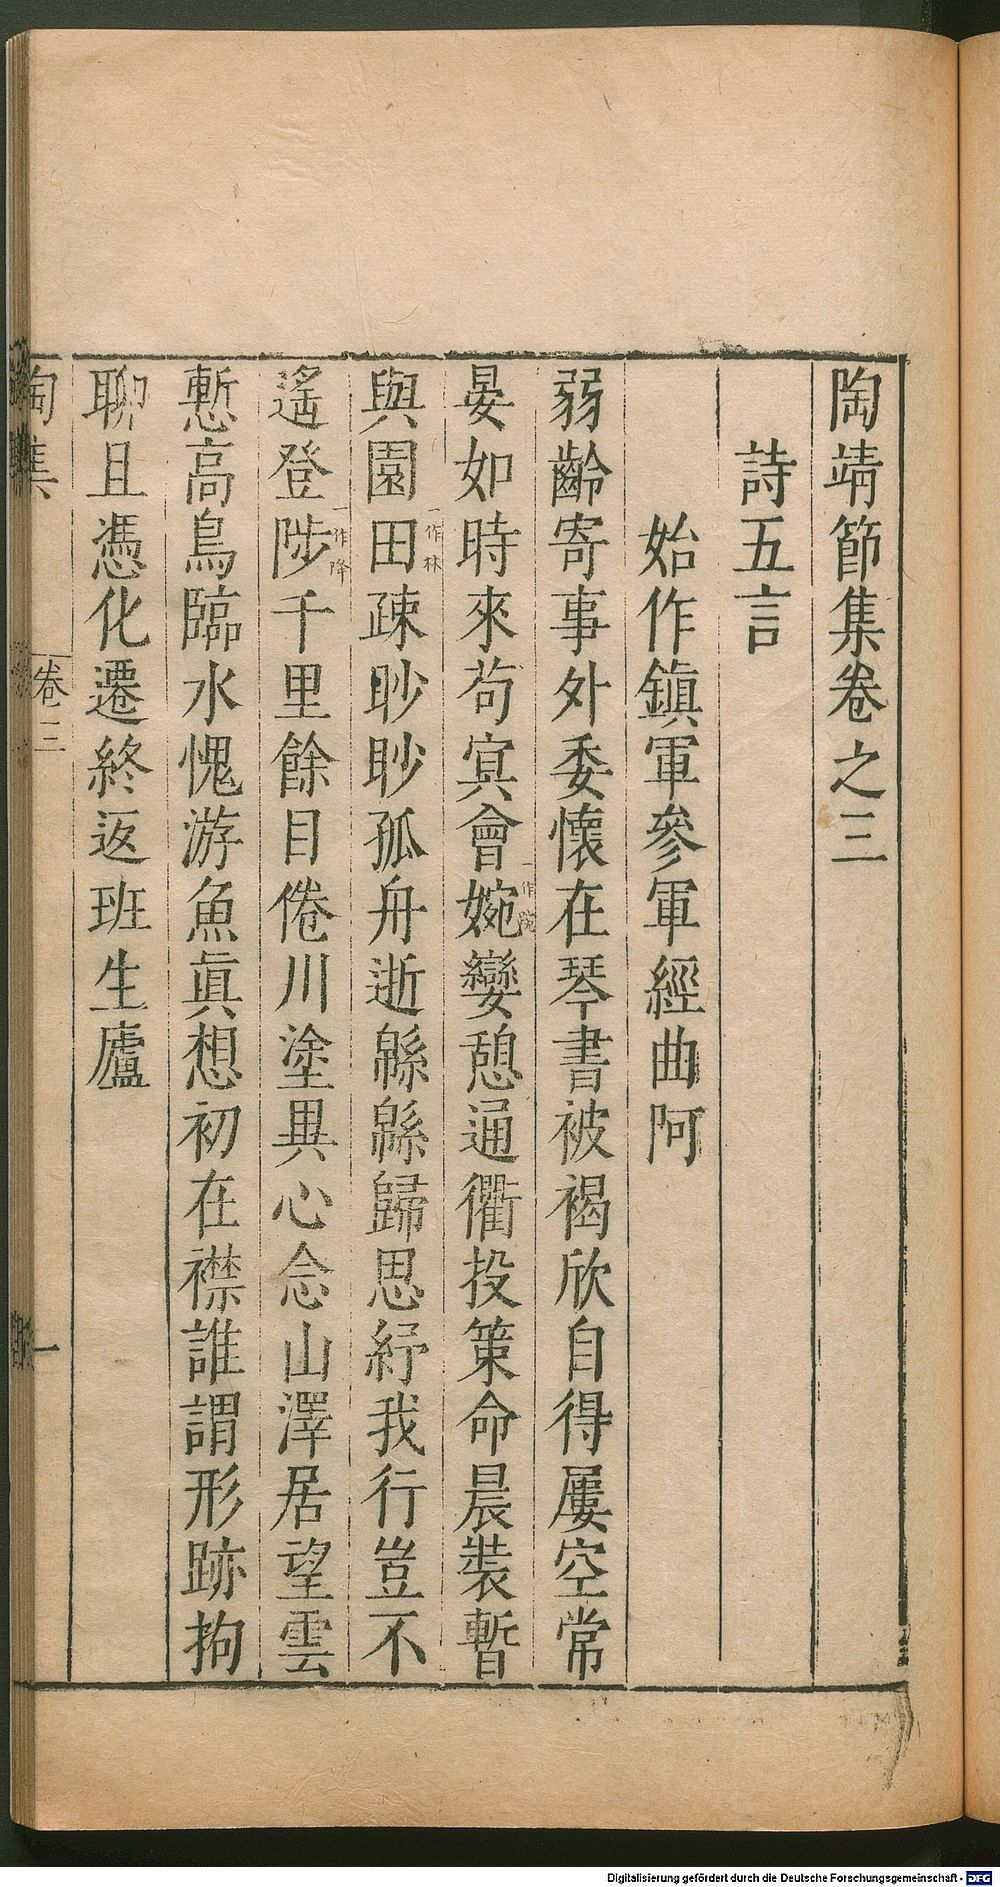 陶靖節集卷之三
詩五言
始作鎮軍參軍經曲阿
弱齡寄事外委懷在琴書被褐欣自得屢空常
晏如時來苟冥會婉一作宛孌憩通衢投策命晨裝暫
與園田一作林疎眇眇孤舟逝緜緜歸思紆我行豈不
遙登陟一作降千里餘目倦川塗異心念山澤居望雲
慙高鳥臨水愧游魚眞想初在襟誰謂形跡拘
聊且憑化遷終返班生廬
陶集 卷三 一
Digitalisierung gefördert durch die Deutsche Forschungsgemeinschaft - DFG